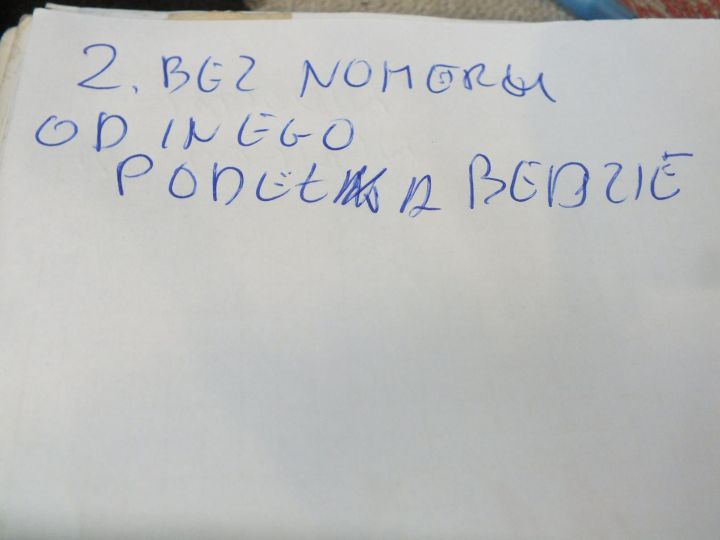 2. BEZ NOMERU
OD INEGO
PODEŁKA BEDZIE